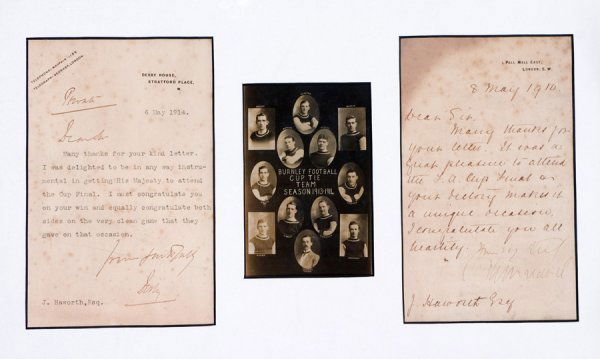 TELEPHONE: MAYFAIR
TELEGRAPH: LONDON.
DERBY HOUSE,
STRATFORD PLACE,
W
Private
6 May 1914.
Dear Sir
Many thanks for your kind letter.
I was delighted to be in any way instru-
mental in getting His Majesty to attend
the Cup Final. I must congratulate you
on your win and equally congratulate both
sides on the very clean game that they
gave on that occasion.
Yours faithfully
Derby
J. Haworth, Esq.
BURNLEY FOOTBALL
CUP TIE
TEAM
SEASON 1913-1914
1 PALL MALL EAST,
LONDON, S.W.
8 May 1914
Dear Sir
Many thanks for
your letter. It was a
great pleasure to attend
the F.A. Cup Final as
your victory makes it
a unique occasion,
I congratulate you all
heartily.
J. Haworth Esq